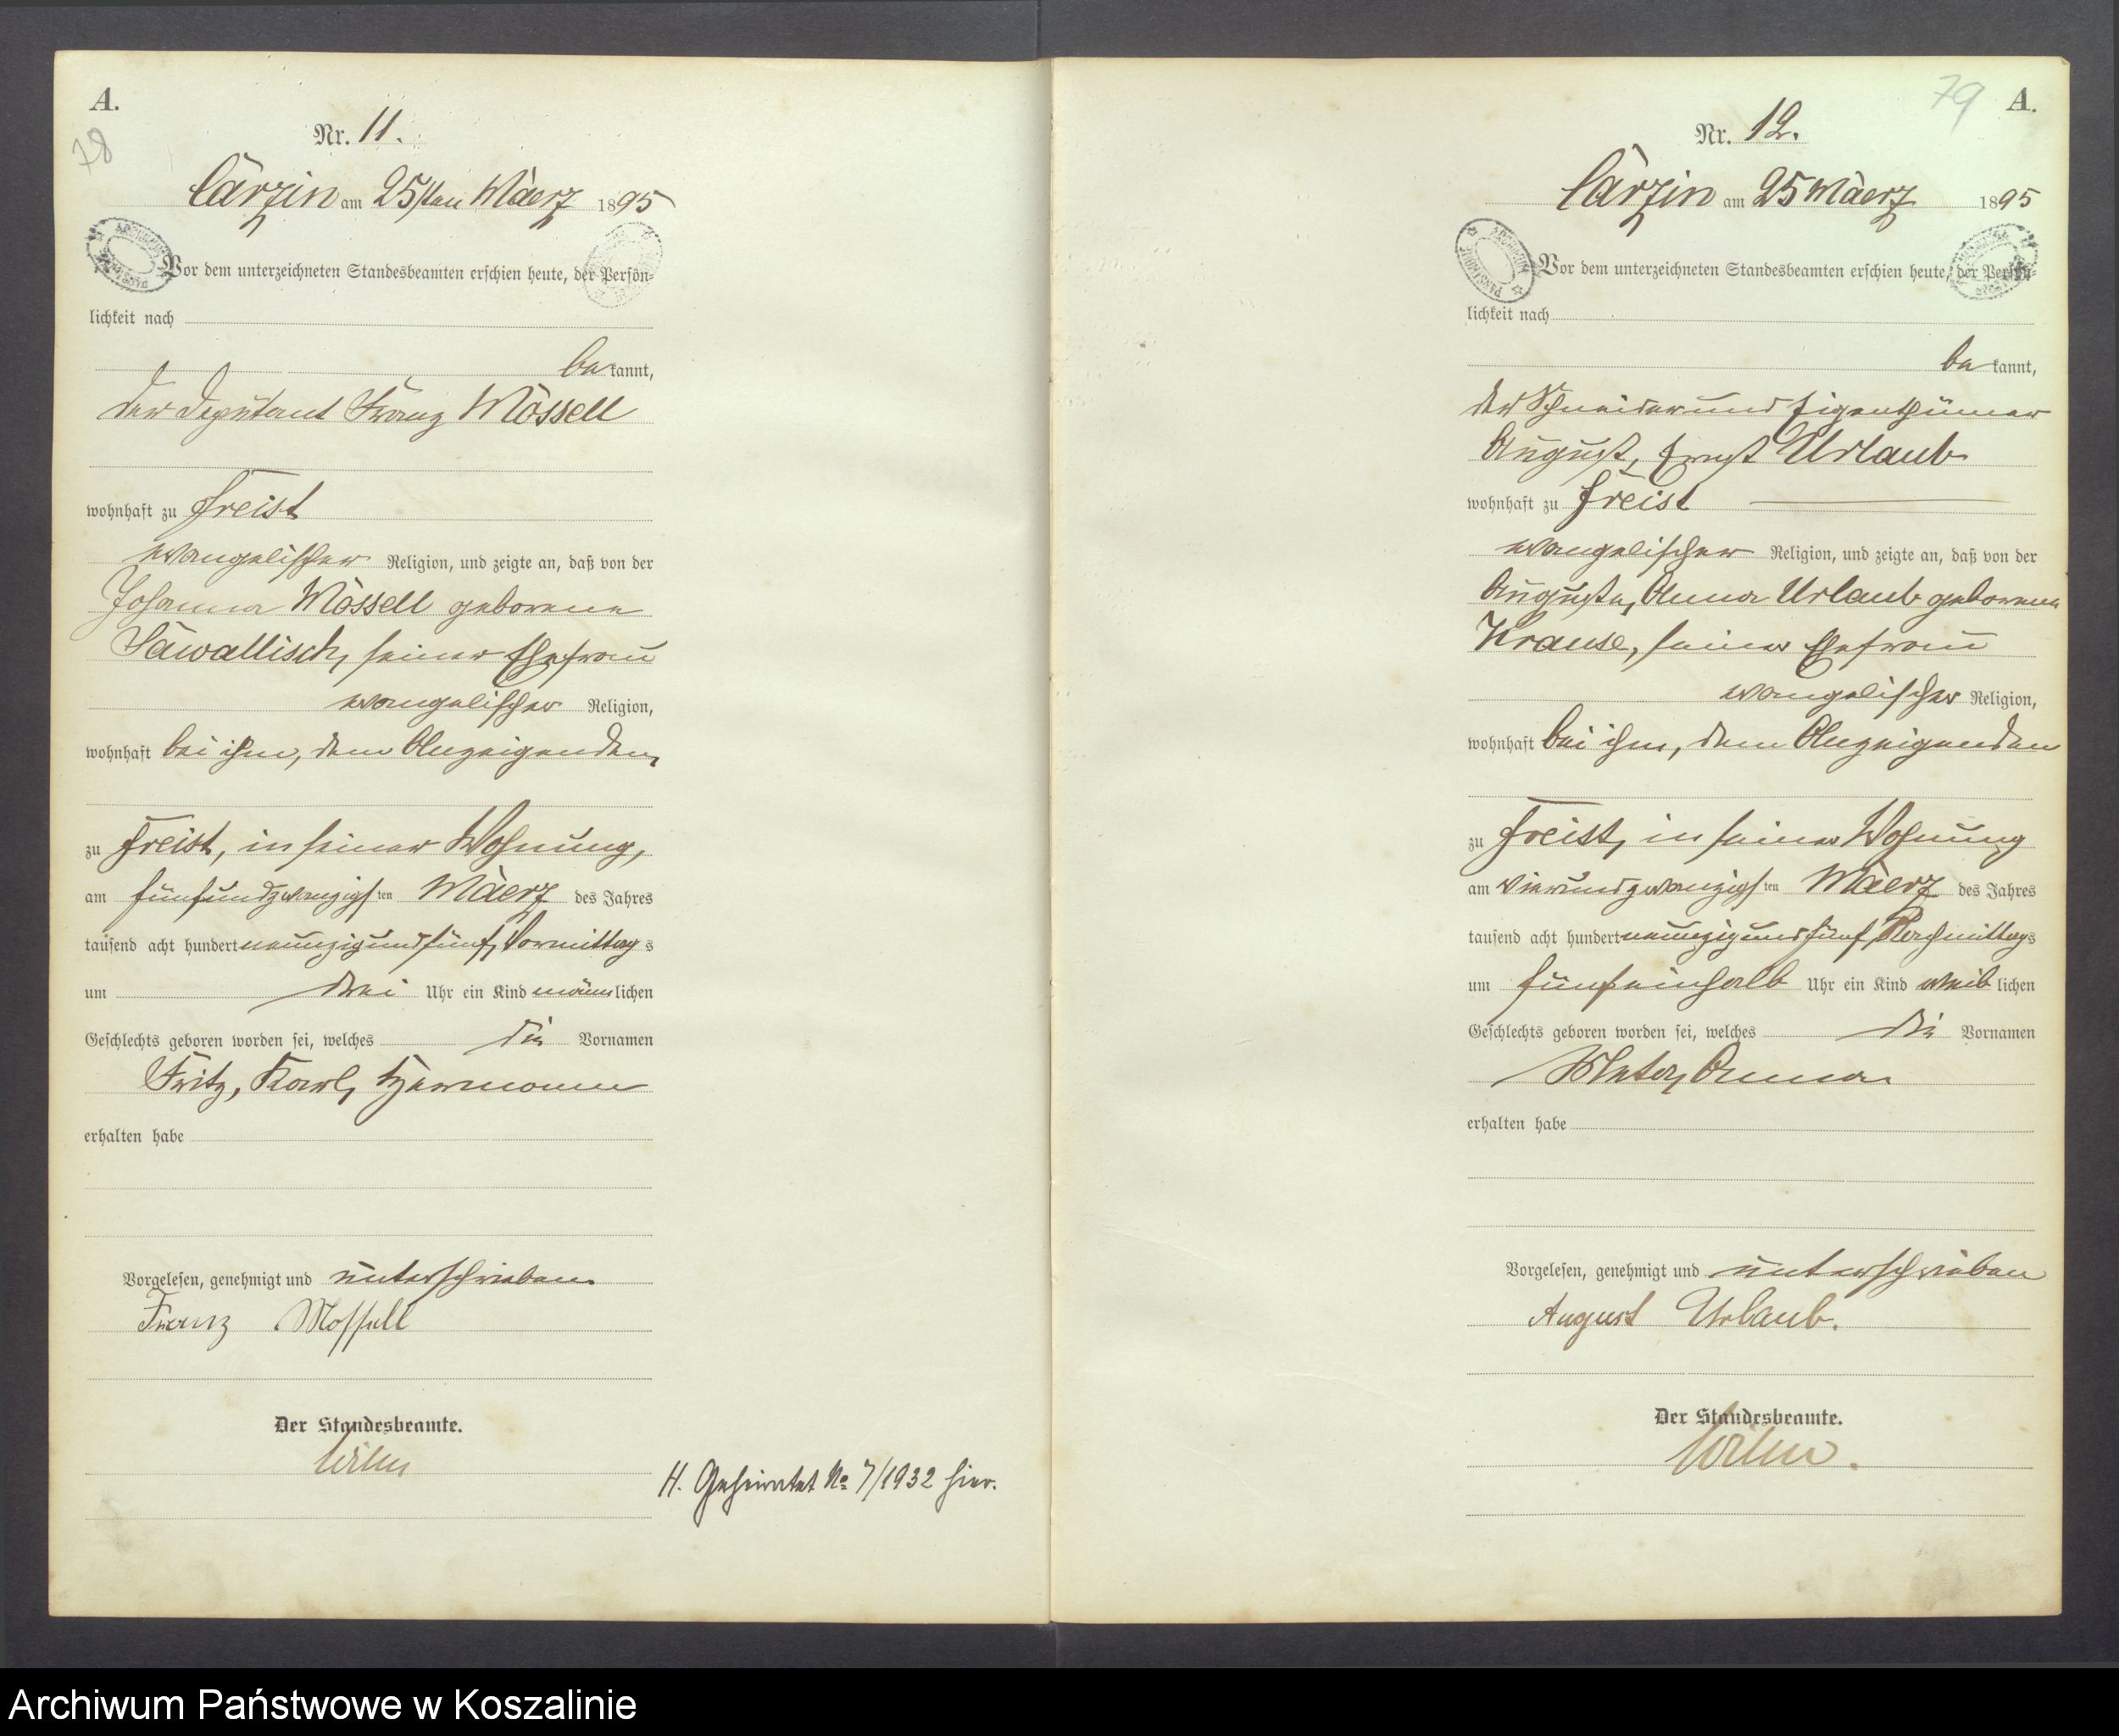 A.
78
Nr. 11.
Carzin am 25sten Maerz 1895
Vor dem unterzeichneten Standesbeamten erschien heute, der Persön-
lichkeit nach
be kannt,
der Deputant Franz Mössell
wohnhaft zu Freist
evangelischer Religion, und zeigte an, daß von der
Johanna Mössell geborene
Sawallisch, seiner Ehefrau
evangelischer Religion,
wohnhaft bei ihm, dem Anzeigenden,
zu Freist, in seiner Wohnung,
am fünfundzwanzigsten Maerz des Jahres
tausend acht hundert neunzig und fünf, Vormittags
um drei Uhr ein Kind männlichen
Geschlechts geboren worden sei, welches die Vornamen
Fritz, Karl, Hermann
erhalten habe
Vorgelesen, genehmigt und unterschrieben
Franz Mossell
Der Standesbeamte.
H. Geheiratet No 7/1932 hier.
79
A.
Nr. 12.
Carzin am 25 Maerz 1895
Vor dem unterzeichneten Standesbeamten erschien heute, der Persön-
lichkeit nach
be kannt,
der Schneider und Eigenthümer
August, Ernst Urlaub
wohnhaft zu Freist
evangelischer Religion, und zeigte an, daß von der
Auguste, Anna Urlaub geborene
Krause, seiner Ehefrau
evangelischer Religion,
wohnhaft bei ihm, dem Anzeigenden
zu Freist, in seiner Wohnung
am vierundzwanzigsten Maerz des Jahres
tausend acht hundert neunzig und fünf Nachmittags
um fünfeinhalb Uhr ein Kind weiblichen
Geschlechts geboren worden sei, welches die Vornamen
Meta, Anna
erhalten habe
Vorgelesen, genehmigt und unterschrieben
August Urlaub.
Der Standesbeamte.
Archiwum Państwowe w Koszalinie